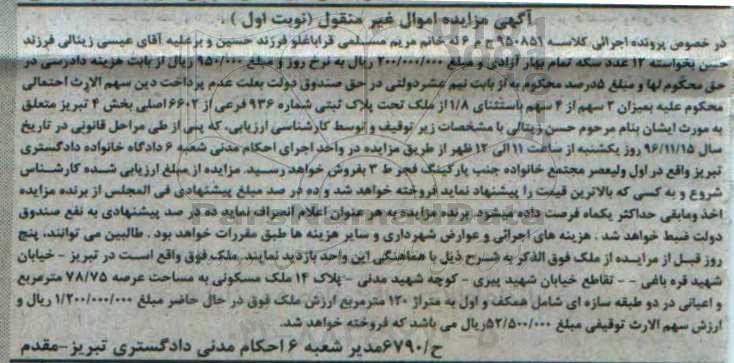 آگهی مزایده اموال غیر منقول (نوبت اول)
در خصوص پرونده اجرائی کلاسه ۹۵۰۸۵۱ج م ۶ له خانم مریم مسلمی قراباغلو فرزند حسین و بر علیه آقای عیسی زینالی فرزند
حسن بخواسته ۱۲ عدد سکه تمام بهار آزادی و مبلغ ۲۰۰/۰۰۰/۰۰۰ ریال به نرخ روز و مبلغ ۹۵۰/۰۰۰ ریال از بابت هزینه دادرسی در
حق محکوم لها و مبلغ ۵درصد محکوم به از بابت نیم عشر دولتی در حق صندوق دولت بعلت عدم پرداخت دین سهم الارث احتمالی
محکوم علیه بمیزان ۲ سهم از ۴ سهم باستثنای ۱/۸ از ملک تحت پلاک ثبتی شماره ۹۳۶ فرعی از ۶۶۰۲ اصلی بخش ۴ تبریز متعلق
به مورث ایشان بنام مرحوم حسن زینالی با مشخصات زیر توقیف و توسط کارشناسی ارزیابی، که پس از طی مراحل قانونی در تاریخ
سال ۹۶/۱۱/۱۵ روز یکشنبه از ساعت ۱۱ الی ۱۲ ظهر از طریق مزایده در واحد اجرای احکام مدنی شعبه ۶ دادگاه خانواده دادگستری
تبریز واقع در اول ولیعصر مجتمع خانواده جنب پارکینگ فجر ط ۳ بفروش خواهد رسید. مزایده از مبلغ ارزیابی شده کارشناس
شروع و به کسی که بالاترین قیمت را پیشنهاد نماید فروخته خواهد شد و ده در صد مبلغ پیشنهادی فی المجلس از برنده مزایده
اخذ ومابقی حداکثر یکماه فرصت داده میشود. برنده مزایده به هر عنوان اعلام انصراف نماید ده در صد پیشنهادی به نفع صندوق
دولت ضبط خواهد شد . هزینه های اجرائی و عوارض شهرداری و سایر هزینه ها طبق مقررات خواهد بود . طالبین می توانند، پنج
روز قبل از مزایده از ملک فوق الذکر به شرح ذیل با هماهنگی این واحد بازدید نمایند. ملک فوق واقع است در تبریز - خیابان
شهید قره باغی -- تقاطع خیابان شهید پیری - کوچه شهید مدنی - پلاک ۱۴ ملک مسکونی به مساحت عرصه ۷۸/۷۵ مترمربع
و اعیانی در دو طبقه سازه ای شامل همکف و اول به متراژ ۱۲۰ مترمربع ارزش ملک فوق در حال حاضر مبلغ ۱/۲۰۰/۰۰۰/۰۰۰ ریال و
ارزش سهم الارث توقیفی مبلغ ۵۲/۵۰۰/۰۰۰ریال می باشد که فروخته خواهد شد.
ح/۶۷۹۰مدیر شعبه ۶ احکام مدنی دادگستری تبریز-مقدم